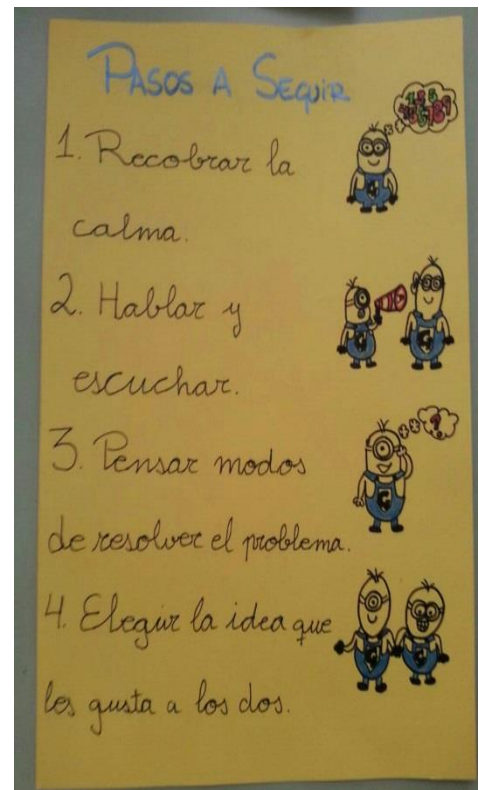 PASOS A SEGUIR
1. Recobrar la
calma.
2. Hablar y
escuchar.
3. Pensar modos
de resolver el problema.
4. Elegir la idea que
les gusta a los dos.